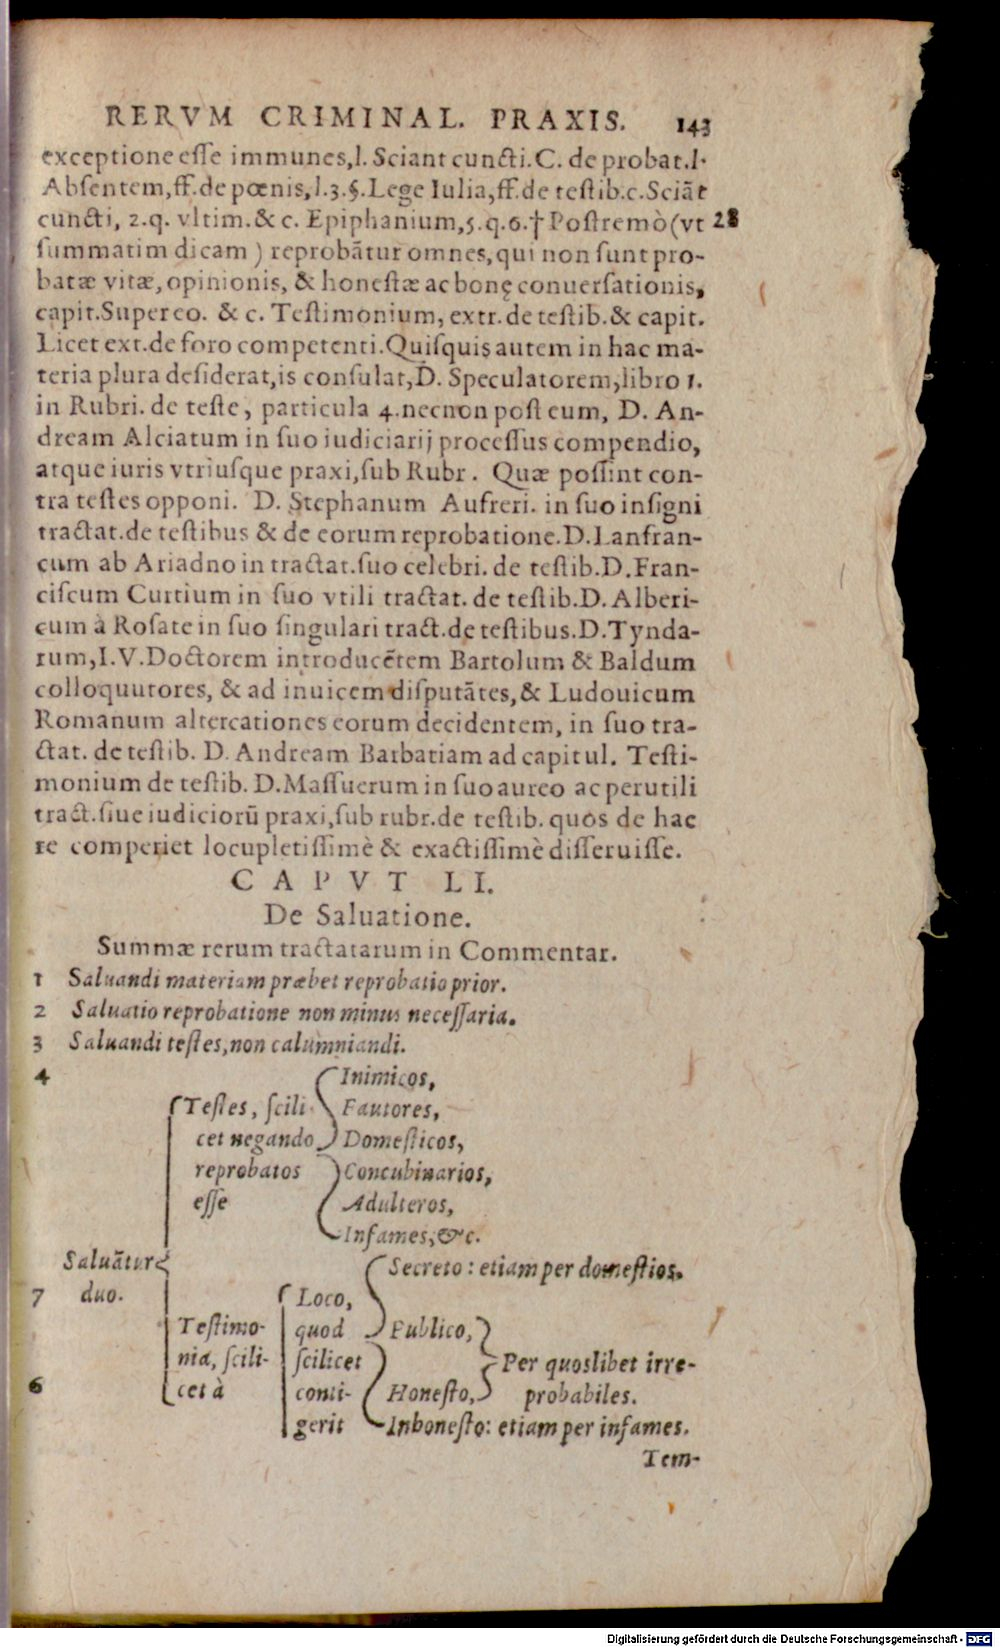 RERVM CRIMINAL. PRAXIS. 143
exceptione eſſe immunes, l. Sciant cuncti. C. de probat. l.
Abſentem, ff. de pœnis, l. 3. §. Lege Iulia, ff. de teſtib. c. Sciāt
cuncti, 2. q. vltim. & c. Epiphanium, 5. q. 6. † Poſtremò (vt 28
ſummatim dicam) reprobātur omnes, qui non ſunt pro-
batæ vitæ, opinionis, & honeſtæ ac bonę conuerſationis,
capit. Super eo. & c. Teſtimonium, extr. de teſtib. & capit.
Licet ext. de foro competenti. Quiſquis autem in hac ma-
teria plura deſiderat, is conſulat, D. Speculatorem, libro 1.
in Rubri. de teſte, particula 4. necnon poſt eum, D. An-
dream Alciatum in ſuo iudiciarij proceſſus compendio,
atque iuris vtriuſque praxi, ſub Rubr. Quæ poſſint con-
tra teſtes opponi. D. Stephanum Aufreri. in ſuo inſigni
tractat. de teſtibus & de eorum reprobatione. D. Lanfran-
cum ab Ariadno in tractat. ſuo celebri. de teſtib. D. Fran-
ciſcum Curtium in ſuo vtili tractat. de teſtib. D. Alberi-
cum à Roſate in ſuo ſingulari tract. de teſtibus. D. Tynda-
rum, I. V. Doctorem introducētem Bartolum & Baldum
colloquutores, & ad inuicem diſputātes, & Ludouicum
Romanum altercationes eorum decidentem, in ſuo tra-
ctat. de teſtib. D. Andream Barbatiam ad capitul. Teſti-
monium de teſtib. D. Maſſuerum in ſuo aureo ac perutili
tract. ſiue iudiciorū praxi, ſub rubr. de teſtib. quos de hac
re comperiet locupletiſſimè & exactiſſimè diſſeruiſſe.
CAPVT LI.
De Saluatione.
Summæ rerum tractatarum in Commentar.
1 Saluandi materiam præbet reprobatio prior.
2 Saluatio reprobatione non minus neceſſaria.
3 Saluandi teſtes, non calumniandi.
4 Inimicos,
Teſtes, ſcili Fautores,
cet negando Domeſticos,
reprobatos Concubinarios,
eſſe Adulteros,
Infames, &c.
Saluātur Secreto: etiam per domeſtios.
7 duo. Loco,
Teſtimo- quod Publico,
nia, ſcili- ſcilicet Per quoslibet irre-
6 cet à conti- Honeſto, probabiles.
gerit Inhoneſto: etiam per infames.
Tem-
Digitalisierung gefördert durch die Deutsche Forschungsgemeinschaft - DFG